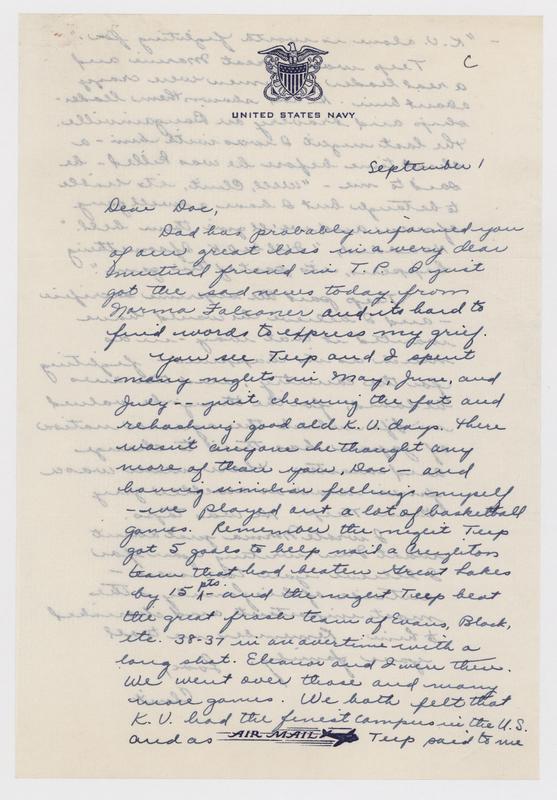 C
UNITED STATES NAVY
September 1
Dear Doc,
Dad has probably informed you
of our great loss in a very dear
mutual friend in T.P. I just
got the sad news today from
Norma Falconer and its hard to
find words to express my grief.
You see Teep and I spent
many nights in May, June, and
July -- just chewing the fat and
rehashing good old K.U. days. There
wasn't anyone he thought any
more of than you, Doc - and
having similiar feelings myself
- we played out a lot of basketball
games. Remember the night Teep
got 5 goals to help nail a Creighton
team that had beaten Great Lakes
by 15 pts. - and the night Teep beat
the great frosh team of Evans, Black,
etc. 38-37 in an overtime with a
long shot. Eleanor and I were there.
We went over those and many
more games. We both felt that
K.U. had the finest campus in the U.S.
and as Teep said to me
AIR MAIL